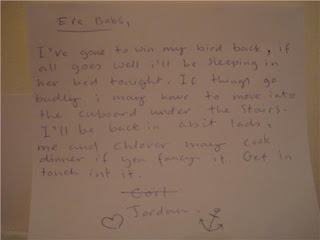 Ere Babs,
I've gone to win my bird back, if
all goes well i'll be sleeping in
her bed tonight. If things go
badly i may have to move into
the cupboard under the stairs.
I'll be back in abit lads,
me and Chlover may cook
dinner if you fancy it. Get in
touch int it.
Gort
Jordan.